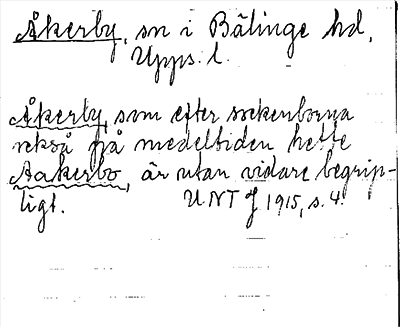 Åkerby, sn i Bälinge hd,
Upps. l.
Åkerby, som efter sockenborna
också på medeltiden hette
Aakerbo, är utan vidare begrip-
ligt. UNT J 1915, s. 4.